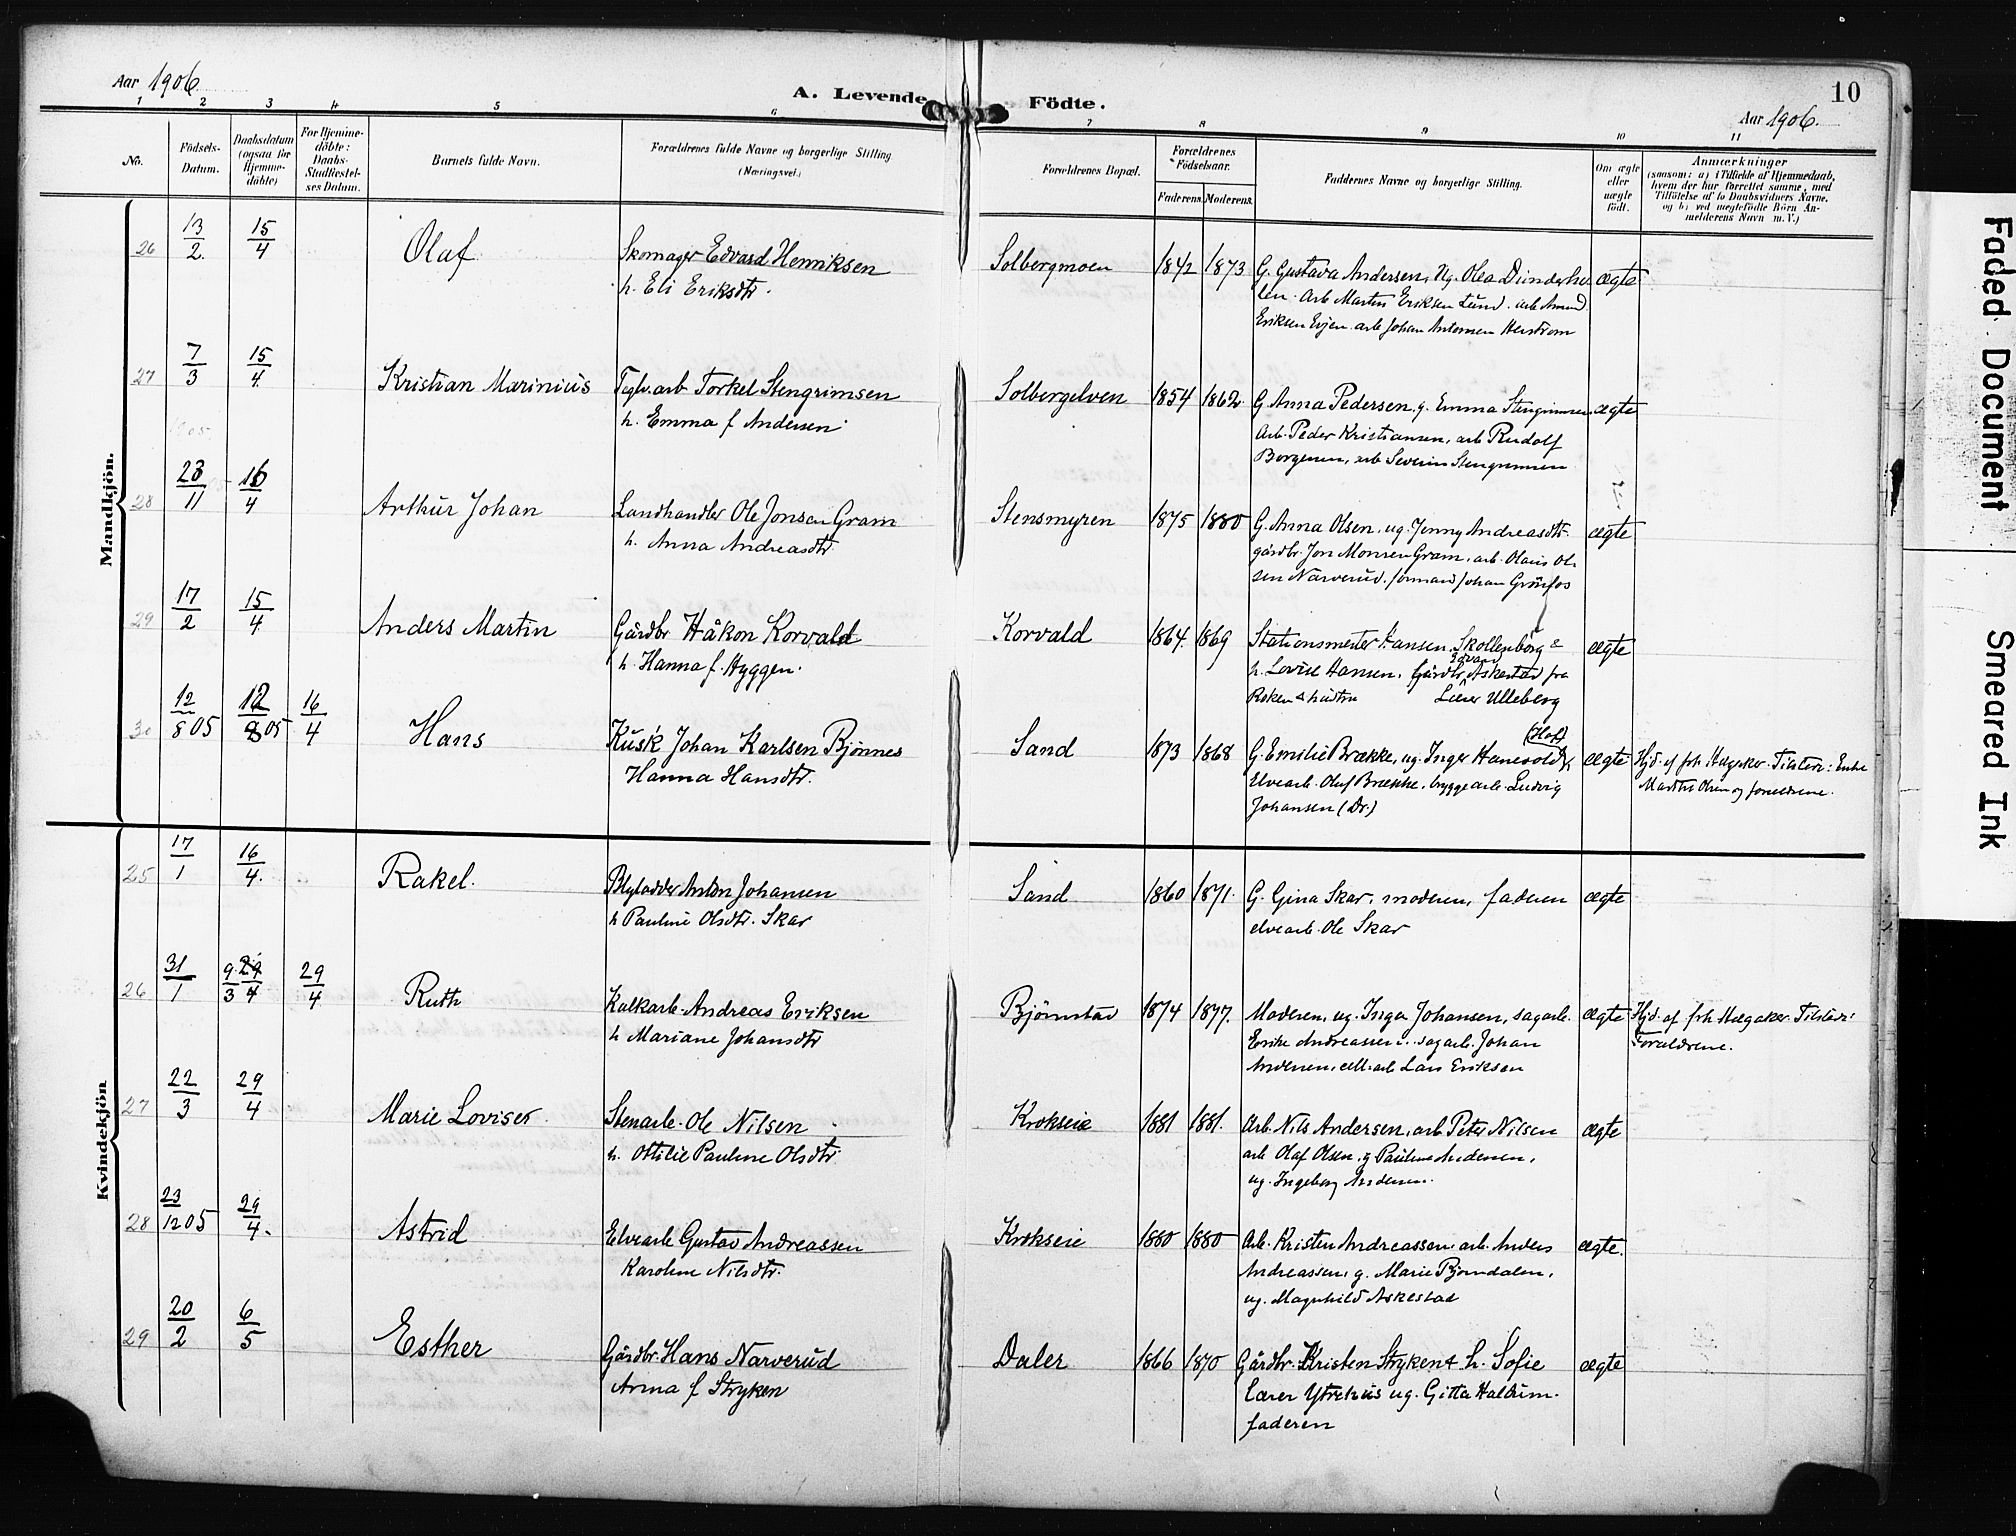 Aar 1906.
A. Levende Födte.
10
Aar 1906.
1 2 3 4 5 6 7 8 9 10 11
No.
Födsels-Datum.
Daabsdatum (ogsaa for Hjemme-döbte)
For Hjemme-döbte: Daabs-Stadfæstel-ses Datum.
Barnets fulde Navn.
Forældrenes fulde Navne og borgerlige Stilling (Næringsvei.)
Forældrenes Bopæl.
Forældrenes Födselsaar.
Faderens. Moderens.
Faddernes Navne og borgerlige Stilling.
Om ægte eller uægte födt.
Anmærkninger
(saasom: a) i Tilfælde af Hjemmedaab,
hvem der har forrettet samme, med
Tilföielse af to Daabsvidners Navne.
og b) ved uægtefödte Börn An-
melderens Navn m. V.)
Mandkjön.
26 13/2 15/4 Olaf Skomager Edvard Henriksen Solbergmoen 1842 1873 G. Gustava Andersen, ug. Olea Dunderhu ægte
h. Eli Eriksdtr. len. Arb Martin Eriksen Lund. arb Amund
Eriksen Evjen. arb Johan Antonsen Herstrøm
27 7/3 15/4 Kristian Marinius Teglv.arb Torkel Stengrimsen Solbergelven 1854 1862 G Anna Pedersen, g. Emma Stengrimsen ægte
h. Emma f Andersen Arb. Peder Kristiansen, arb Rudolf
Borgersen, arb Severin Stengrimsen
1905
28 23/11 16/4 Arthur Johan Landhandler Ole Jonsen Gram Stensmyren 1875 1880 G. Anna Olsen, ug. Jenny Andreasdtr. ægte
h. Anna Andreasdtr gårdbr Jon Monsen Gram, arb. Olaus Ol-
sen Narverud. formand Johan Grönfos
29 17/2 15/4 Anders Martin Gårdbr Håkon Korvald Korvald 1864 1869 Stationsmester Hansen, Skollenborg & ægte
h. Hanna f. Hyggen. h. Lovise Hansen, Gårdbr. Askestad fra
Røken & hustru Lærer Ulleberg
30 12/8 05 12/8 05 16/4 Hans Kusk Johan Karlsen Bjønnes Sand 1873 1868 G. Emilie Brække, ug. Inger Hansdtr (Hof) ægte Hjd. af frk Hægaker. Tilstede: Enke
Hanna Hansdtr. Elvearb. Oluf Brække, bryggearb. Ludvig Marthe Olsen og forældrene.
Johansen (Dr.)
Kvindekjön
25 17/1 16/4 Rakel. Anton Johansen Sand 1860 1871. G. Gina Skar, moderen, faderen ægte
h Pauline Olsdtr. Skar elvearb. Ole Skar
26 31/1 9/3 29/4 29/4 Ruth Kalkarb. Andreas Eriksen Bjørnstad 1874 1877. Moderen, ug. Inga Johansen, sagarb. ægte Hjd. af frk Hægaker. Tilstede:
h Mariane Johansdtr Enike Andreassen. sagarb. Johan Forældrene.
Andersen, cell.arb Lars Eriksen
27 22/3 29/4 Marie Lovise Stenarb. Ole Nilsen Krokseie 1881 1881. Arb. Nils Andersen, arb. Peter Nilsen ægte
h. Ottilie Pauline Olsdtr arb Olaf Olsen, g Pauline Andersen,
ug. Ingeborg Andersen.
28 23/12 05 29/4 Astrid Elvearb Gustav Andreassen Krokseie 1880 1880 Arb. Kristen Andreassen. arb. Anders ægte.
Karoline Nilsdtr. Andreassen, g. Marie Bjørndalen,
ug. Magnhild Askestad
29 20/2 6/5 Esther Gårdbr. Hans Narverud Daler 1866 1870 Gårdbr. Kristen Stryken & h. Sofie ægte
Anna f Stryken Lærer Ytrehus ug. Gitta Haltum.
faderen
Faded Document
Smeared Ink